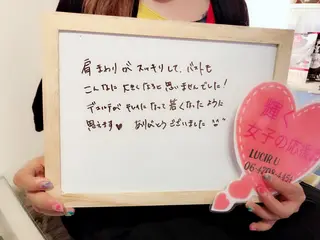 肩まわりがスッキリして、バストも
こんなに大きくなると思いませんでした！
デコルテがキレイになって若くなったように
思えます♥ ありがとうございました
輝く
女子の応援
LUCIR U